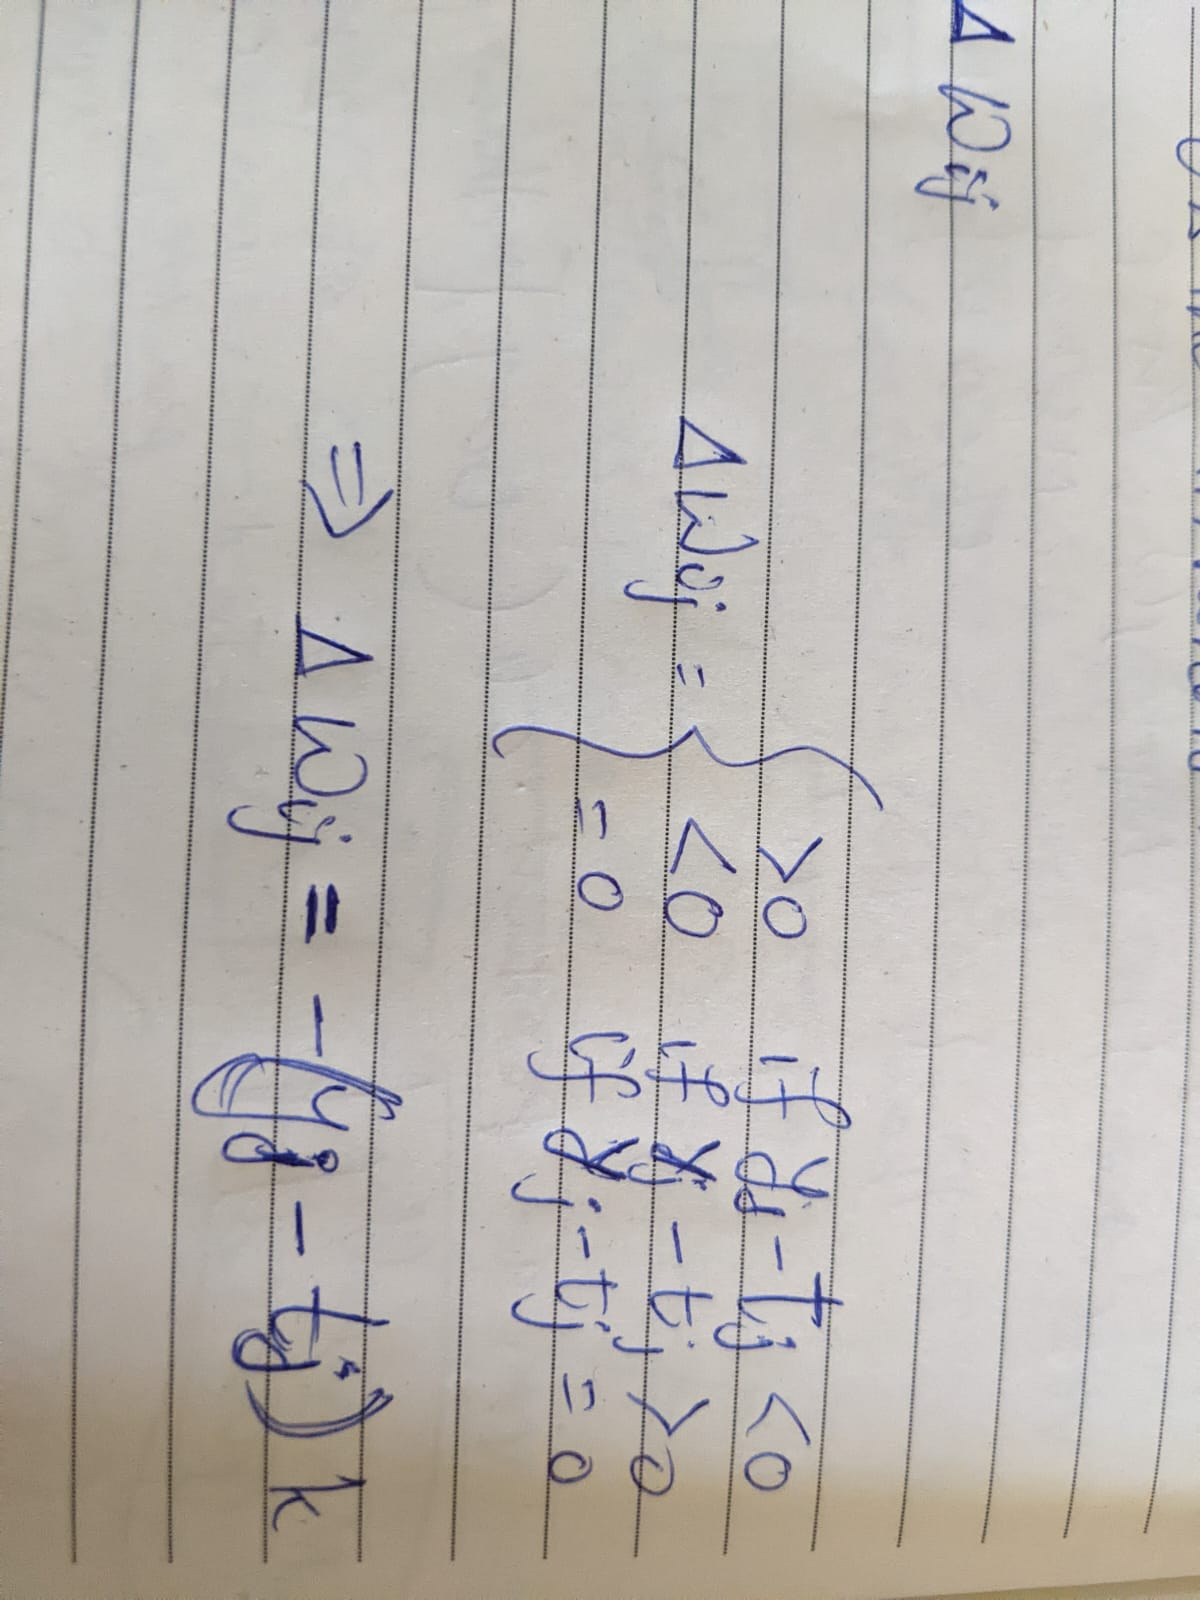 Δ Wij
Δ Wij = { > 0 if yj - tj < 0
< 0 if yj - tj > 0
= 0 if yj - tj = 0
⇒ Δ Wij = - (yj - tj) k